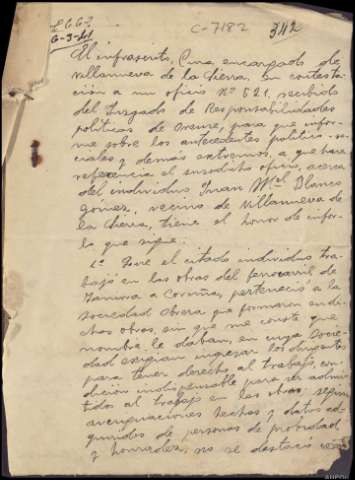 C-7182 342
6-3-41
El infrascrito, Cura encargado de
Villanueva de la Sierra, en contesta-
ción a un oficio Nº 621, recibido
del Juzgado de Responsabilidades
políticas de Orense, para que infor-
me sobre los antecedentes político-so-
ciales y demás extremos, a que hace
referencia el susodicho oficio, acerca
del individuo Juan Mel Blanco
Gómez, vecino de Villanueva de
la Sierra, tiene el honor de infor-
lo que sigue:
1º Que el citado individuo tra-
bajó en las obras del ferrocarril de
Zamora a Coruña, perteneció a la
sociedad obrera que formaron en di-
chas obras, sin que me conste que
nombre le daban, en cuya Socie-
dad exigían ingresar los
para tener derecho al trabajo, con-
dición indispensable para ser admi-
tidos al trabajo en las obras, según
averiguaciones hechas y datos ad-
quiridos de personas de probidad
y honradez, no se destacó como